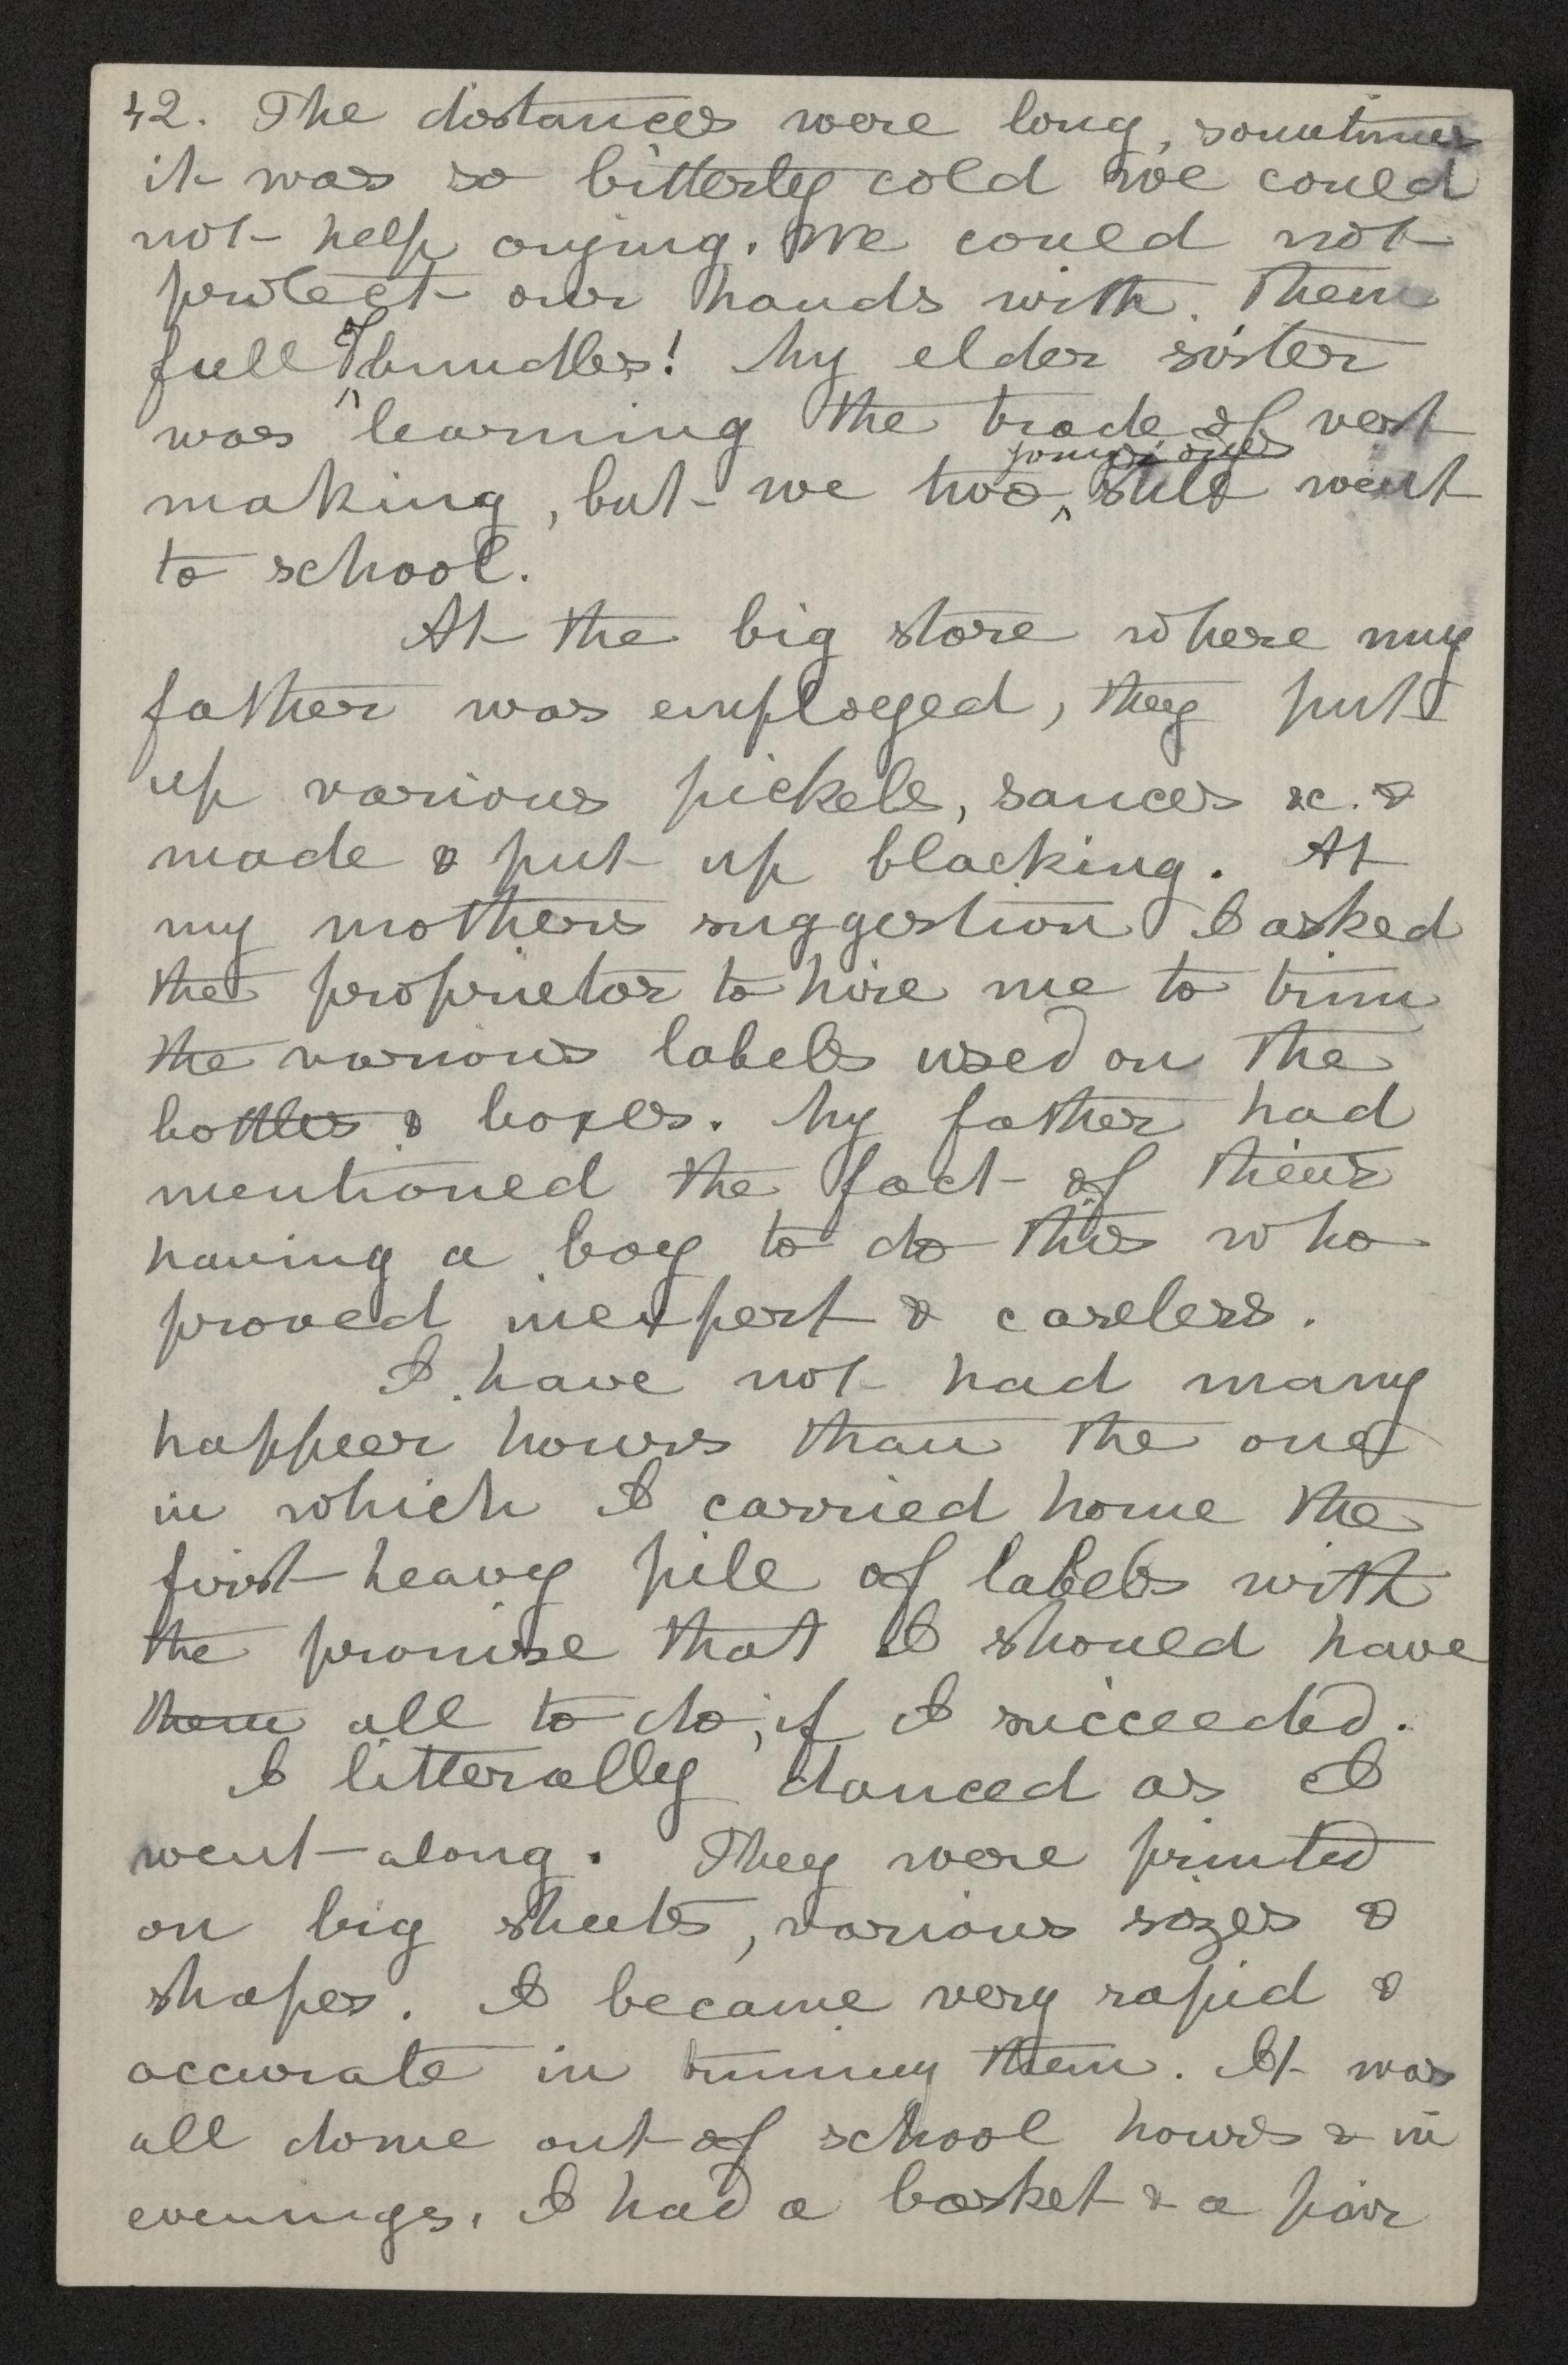 42. The distances were long, sometimes
it was so bitterly cold we could
not help crying. We could not
protect our hands with them
full of bundles! My elder sister
was learning the trade of vest
making, but we two younger ones still went
to school.
At the big store where my
father was employed, they put
up various pickels, sauces &c. &
made & put up blacking. At
my mothers suggestion I asked
the proprietor to hire me to trim
the various labels used on the
bottles & boxes. My father had
mentioned the fact of their
having a boy to do this who
proved inexpert & careless.
I have not had many
happeer hours than the one
in which I carried home the
first heavy pile of labels with
the promise that I should have
them all to do, if I succeeded.
I litterally danced as I
went along. They were printed
on big sheets, various sizes &
shapes. I became very rapid &
accurate in them. It was
all done out of school hours & in
evenings. I had a basket & a pair